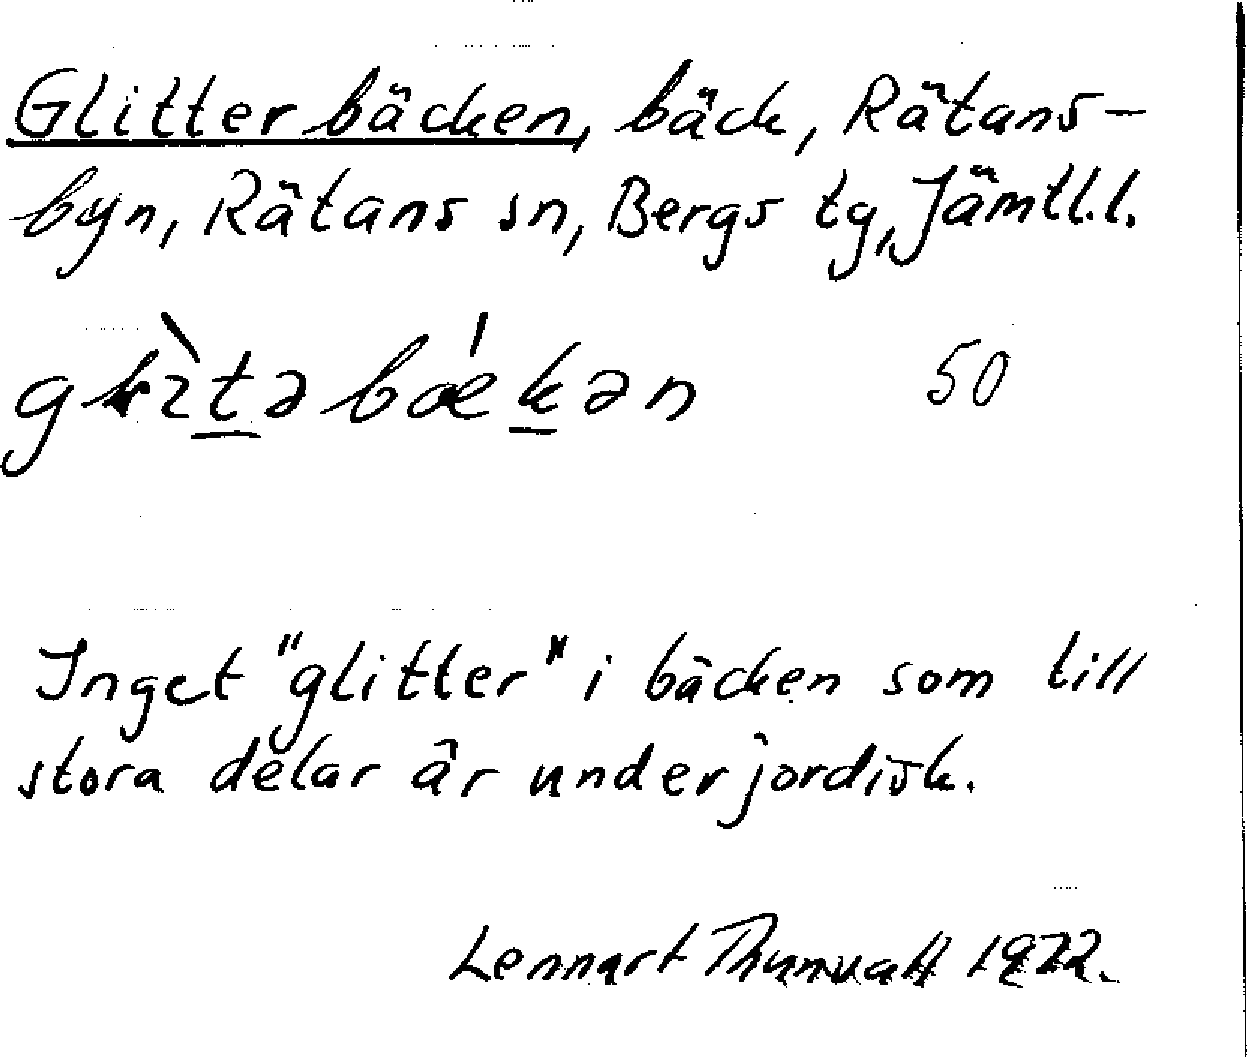 Glitterbäcken, bäck, Rätans-
byn, Rätans sn, Bergs tg, Jämtl.l.
50
Inget "glitter" i bäcken som till
stora delar är underjordisk.
Lennart Thunvall 1972.